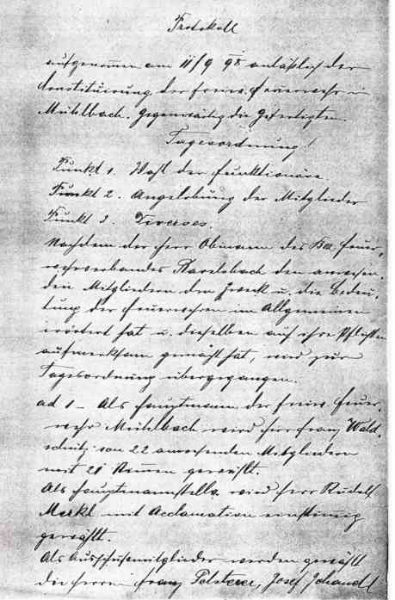 Protokoll
aufgenommen am 11/9 98 anläßlich der
Constituirung der freiw. Feuerwehr in
Mühlbach. Gegenwärtig die Gefertigten.
Tagesordnung!
Punkt 1. Wahl der Funktionäre.
Punkt 2. Angelobung der Mitglieder
Punkt 3. Diverses.
Nachdem der Herr Obmann des Bez. Feuer-
wehrverbandes Ravelsbach den anwesen-
den Mitgliedern den Zweck u. die Bedeu-
tung der Feuerwehren im Allgemeinen
erörtert hat u. dieselben auf ihre Pflichten
aufmerksam gemacht hat, wird zur
Tagesordnung übergegangen.
ad 1 – Als Hauptmann der freiw. Feuer-
wehr Mühlbach wird Herr Franz Wald-
schütz von 22 anwesenden Mitgliedern
mit 21 Stimmen gewählt.
Als Hauptmannstellv. wird Herr Rudolf
Merkl mit Acclamation einstimmig
gewählt.
Als Ausschußmitglieder werden gewählt
die Herren Franz Polsterer, Josef Schandl